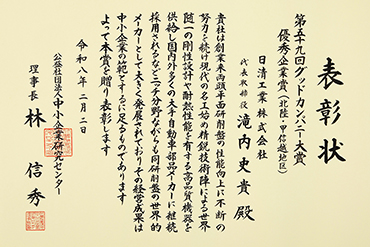 表彰状
第五十九回グッドカンパニー大賞
優秀企業賞(北陸・甲信越地区)
日清工業株式会社
代表取締役 滝内史貴殿
貴社は創業来両頭平面研削盤の性能向上に不断の
努力を続け現代の名工始め精鋭技術陣による世界
随一の剛性設計や耐熱性能を有する高品質機器を
供給し国内外多くの大手自動車部品メーカーに継続
採用されるなどニッチ分野ながらも同研削盤の世界的
メーカーとして大きく発展されておりその経営成果は
中小企業の範とするに足るものであります
よって本賞を贈り表彰します
令和八年二月二日
公益社団法人中小企業研究センター
理事長 林信秀